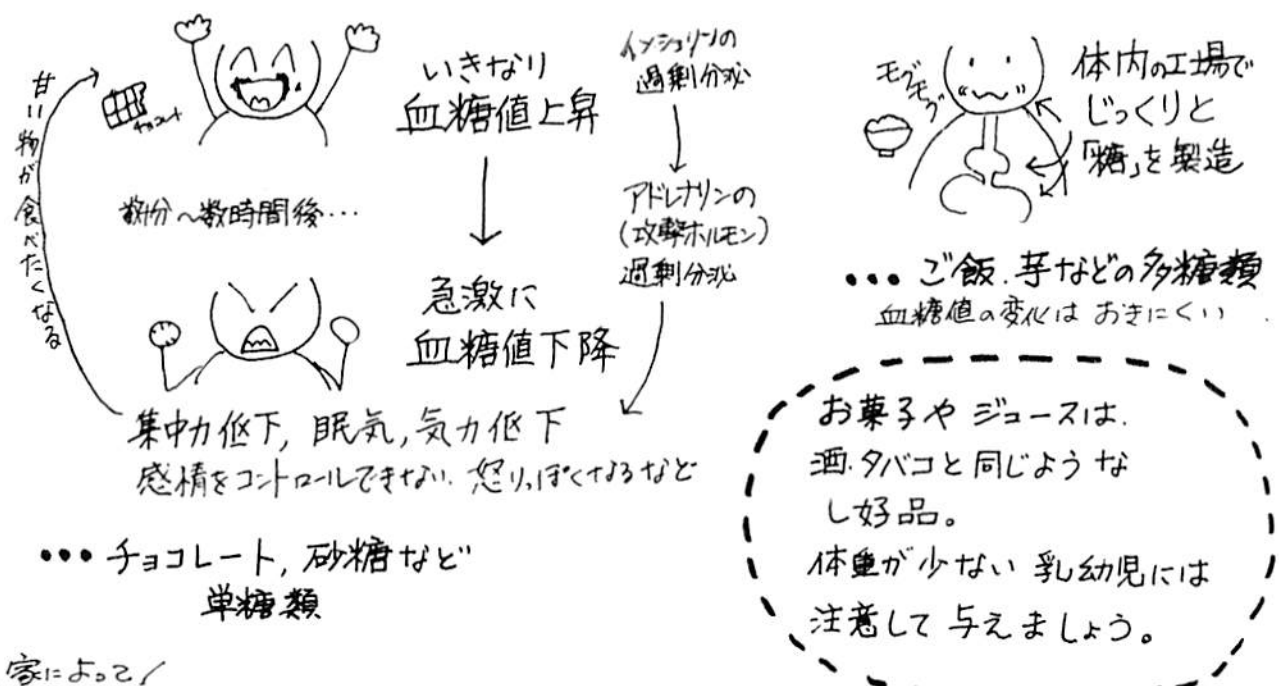 甘い物が食べたくなる
チョコレート
いきなり
血糖値上昇
数分~数時間後…
急激に
血糖値下降
インシュリンの
過剰分泌
アドレナリンの
(攻撃ホルモン)
過剰分泌
集中力低下, 眠気, 気力低下
感情をコントロールできない. 怒りっぽくなるなど
••• チョコレート, 砂糖など
単糖類
家によって
モグモグ
体内の工場で
じっくりと
「糖」を製造
••• ご飯. 芋などの多糖類
血糖値の変化は おきにくい.
お菓子や ジュースは.
酒.タバコと同じような
し好品。
体重が少ない 乳幼児には
注意して与えましょう。